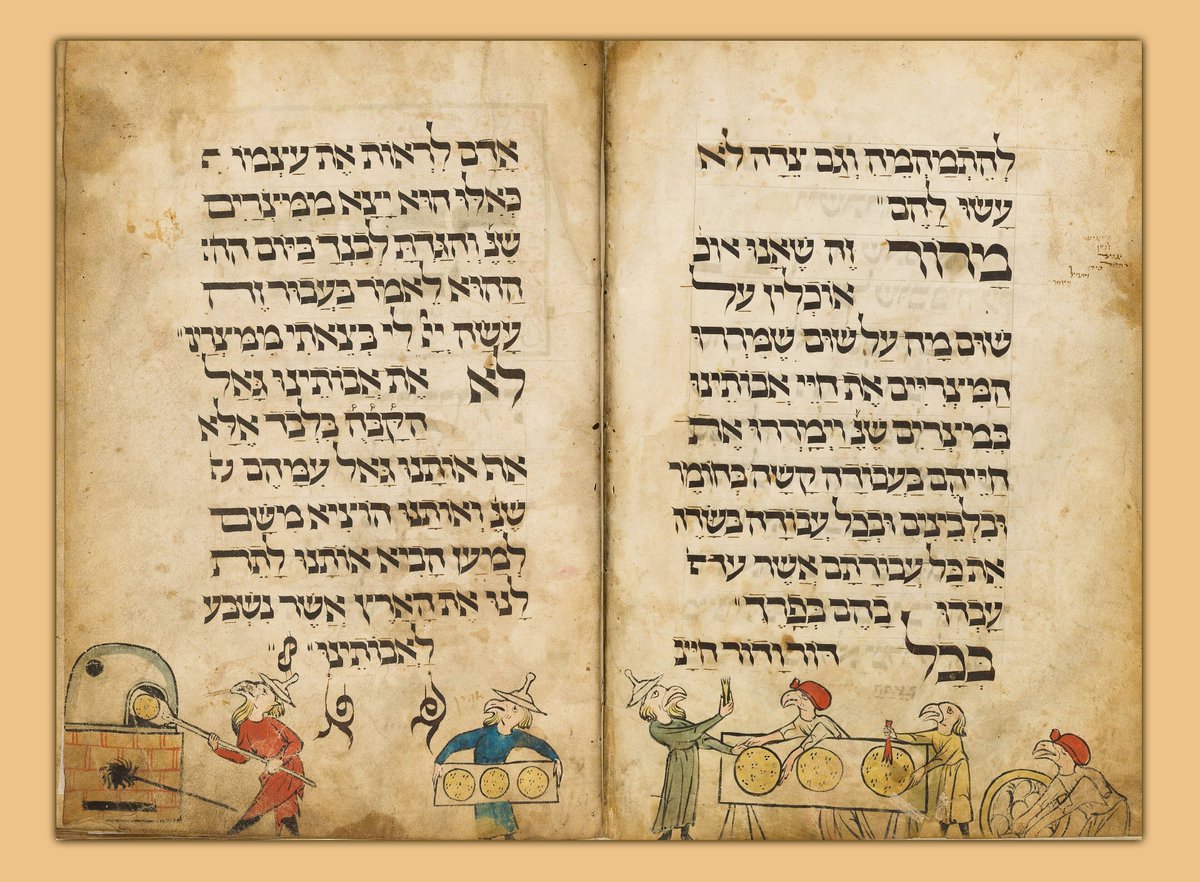 להתמהמה וגם צדה לא
עשו להם"
מרור זה שאנו אוכ
אוכלין על
שום מה על שום שמררו
המיצריים את חיי אבותינו
במיצרים שנ' וימררו את
חייהם בעבודה קשה בחומר
ובלבינים ובכל עבודה בשדה
את כל עבודתם אשר
עבדו בהם בפרך"
בכל דור ודור חייב
אדם לראות את עצמו
כאלו הוא יצא ממיצרים
שנ' והגדת לבנך ביום הה
ההוא לאמר בעבור זה
עשה יי' לי בצאתי ממיצרי'
לא את אבותינו גאל
הקבה בלבד אלא
אף אותנו גאל עמהם
שנ' ואותנו הוציא משם
למען הביא אותנו לתת
לנו את הארץ אשר נשבע
לאבותינו"